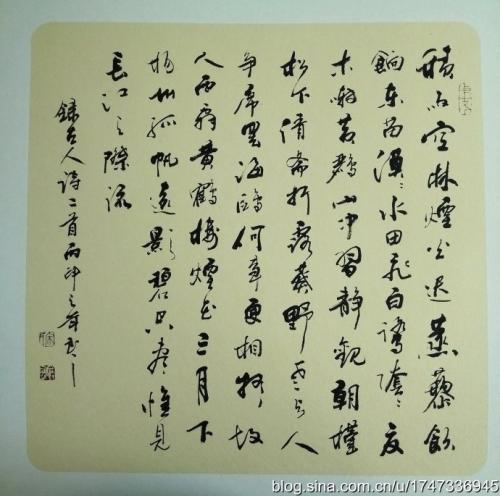 積雨空林煙火遲蒸藜
餉東菑漠〻水田飛白鷺陰〻夏
木囀黃鸝山中習靜觀朝槿
松下清齋折露葵野老與人
爭席罷海鷗何事更相疑故
人西辭黃鶴樓煙花三月下
揚州孤帆遠影碧空盡惟見
長江天際流
錄古人詩二首丙申之年書
blog.sina.com.cn/u/1747336945